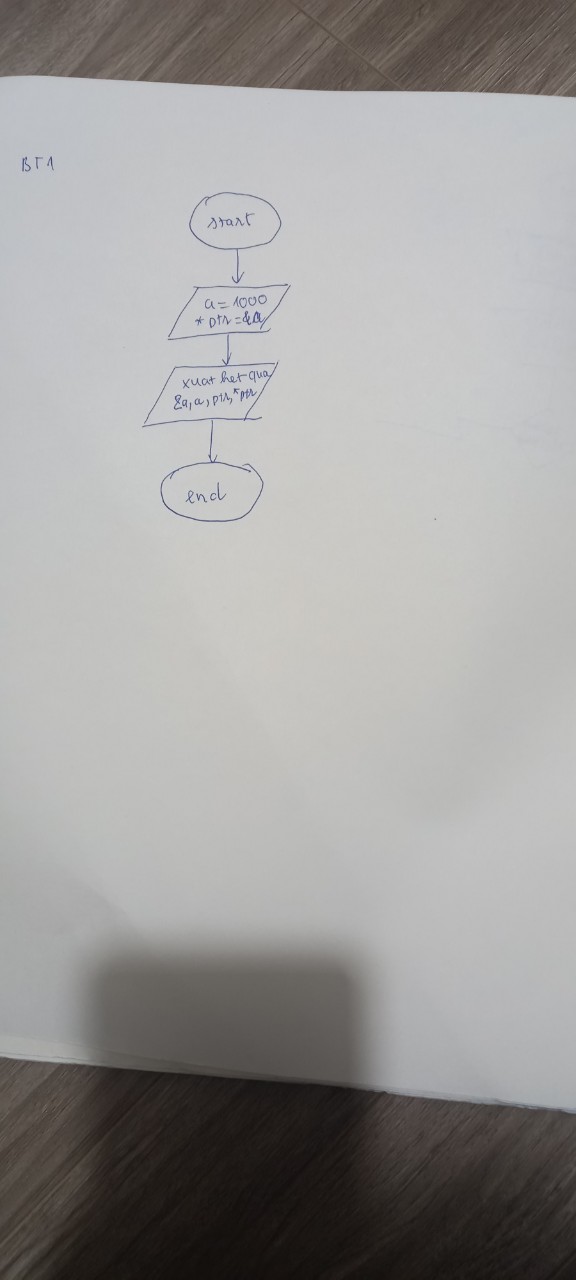 BT1
start
a = 1000
* ptr = &a
xuat ket qua
&a, a, ptr, *ptr
end